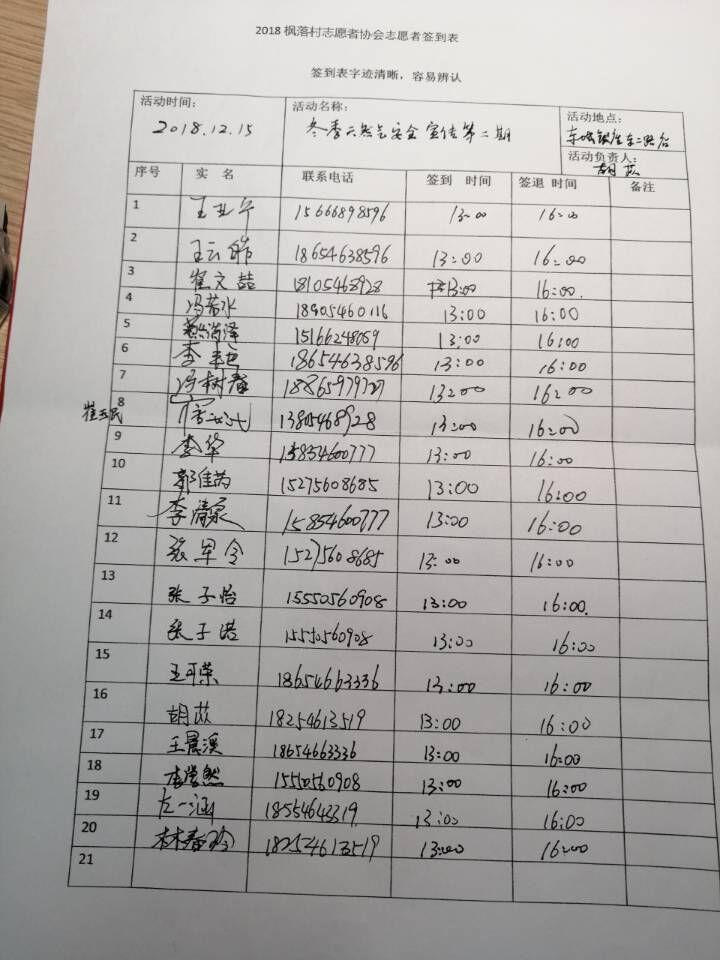 2018 枫落村志愿者协会志愿者签到表
签到表字迹清晰，容易辨认
活动时间： 活动名称： 活动地点：
2018.12.15 冬季天然气安全宣传第二期
活动负责人：
胡苡
序号 实 名 联系电话 签到 时间 签退 时间 备注
1 15666898596 13:00 16:00
2 18654638596 13:00 16:00
3 崔文喆 18105468928 13:00 16:00
4 冯若水 18905460116 13:00 16:00
5 15166248059 13:00 16:00
6 18654638596 13:00 16:00
7 冯树春 18865979727 13:00 16:00
8 13805468928 13:00 16:00
9 李华 15854600777 13:00 16:00
10 郭维芬 15275608685 13:00 16:00
11 李清泉 15854600777 13:00 16:00
12 张军令 15275608685 13:00 16:00
13 张子怡 15550560908 13:00 16:00
14 张子浩 15550560908 13:00 16:00
15 王可荣 18654663336 13:00 16:00
16 胡苡 18254613519 13:00 16:00
17 王晨溪 18654663336 13:00 16:00
18 李浩然 15550560908 13:00 16:00
19 左一涵 18554643319 13:00 16:00
20 林春玲 18254613519 13:00 16:00
21